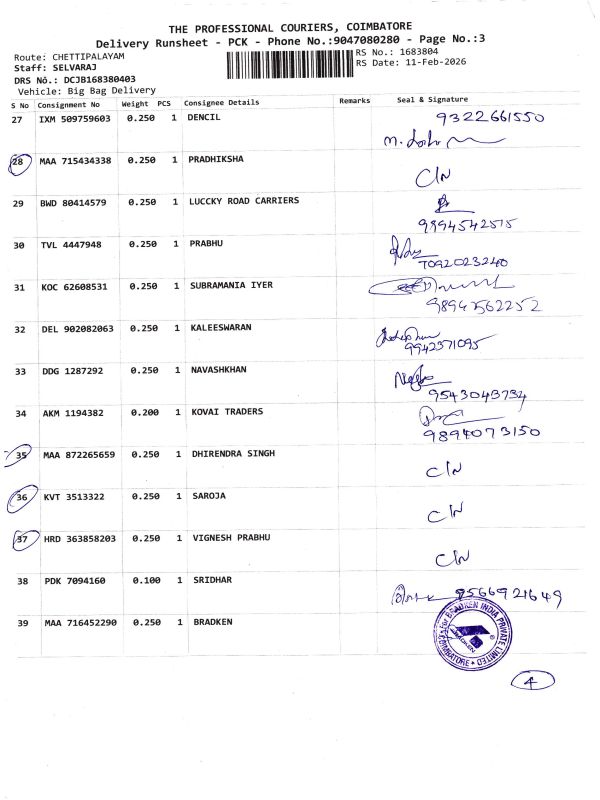 THE PROFESSIONAL COURIERS, COIMBATORE
Delivery Runsheet - PCK - Phone No.:9047080280 - Page No.:3
Route: CHETTIPALAYAM
RS No.: 1683804
Staff: SELVARAJ
RS Date: 11-Feb-2026
DRS No.: DCJB168380403
Vehicle: Big Bag Delivery
S No Consignment No Weight PCS Consignee Details Remarks Seal & Signature
27 IXM 509759603 0.250 1 DENCIL 9322661550
28 MAA 715434338 0.250 1 PRADHIKSHA C/N
29 BWD 80414579 0.250 1 LUCCKY ROAD CARRIERS
9894542515
30 TVL 4447948 0.250 1 PRABHU
7092023240
31 KOC 62608531 0.250 1 SUBRAMANIA IYER
98947562252
32 DEL 902082063 0.250 1 KALEESWARAN
9942371095
33 DDG 1287292 0.250 1 NAVASHKHAN
9543043734
34 AKM 1194382 0.200 1 KOVAI TRADERS
9894073150
35 MAA 872265659 0.250 1 DHIRENDRA SINGH C/N
36 KVT 3513322 0.250 1 SAROJA C/N
37 HRD 363858203 0.250 1 VIGNESH PRABHU C/N
38 PDK 7094160 0.100 1 SRIDHAR 9566921649
39 MAA 716452290 0.250 1 BRADKEN
For BRADKEN INDIA PRIVATE LIMITED
COIMBATORE
4